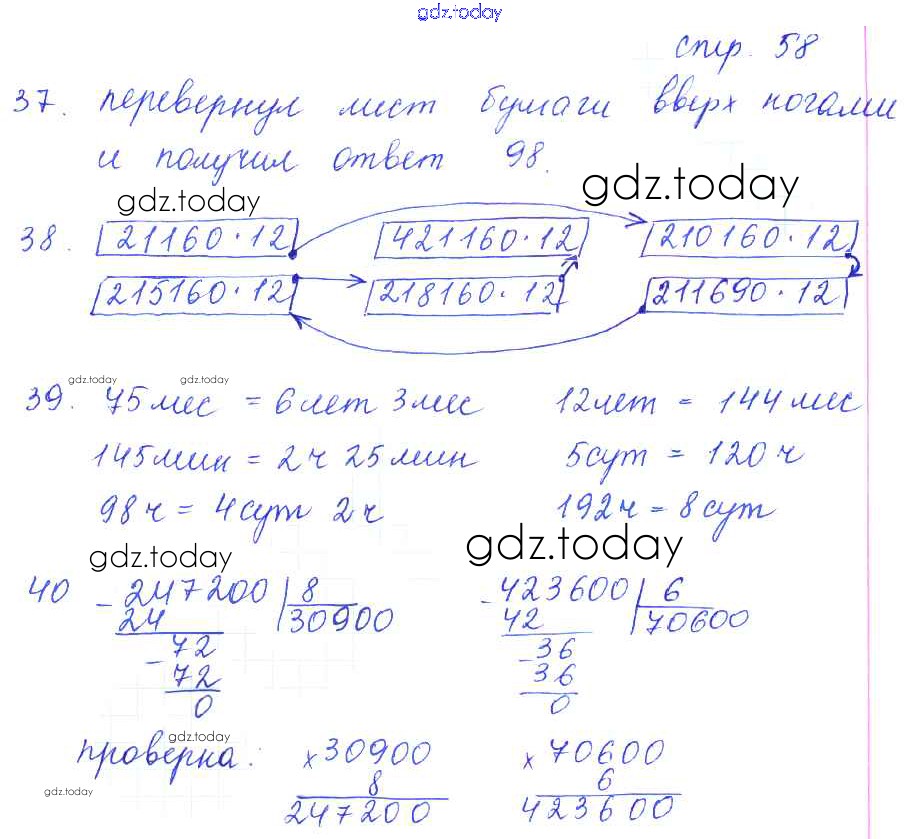 gdz.today
стр. 58
37. перевернул лист бумаги вверх ногами
и получил ответ 98.
gdz.today gdz.today
38. 21160·12 421160·12 210160·12
215160·12 218160·12 211690·12
gdz.today gdz.today
39. 75мес = 6лет 3мес 12лет = 144мес
145мин = 2ч 25мин 5сут = 120ч
98ч = 4сут 2ч 192ч = 8сут
gdz.today gdz.today
40 - 247200 | 8 - 423600 | 6
24 30900 42 70600
- 72 - 36
72 36
0 0
gdz.today
проверка: х 30900 х 70600
gdz.today 8 6
247200 423600